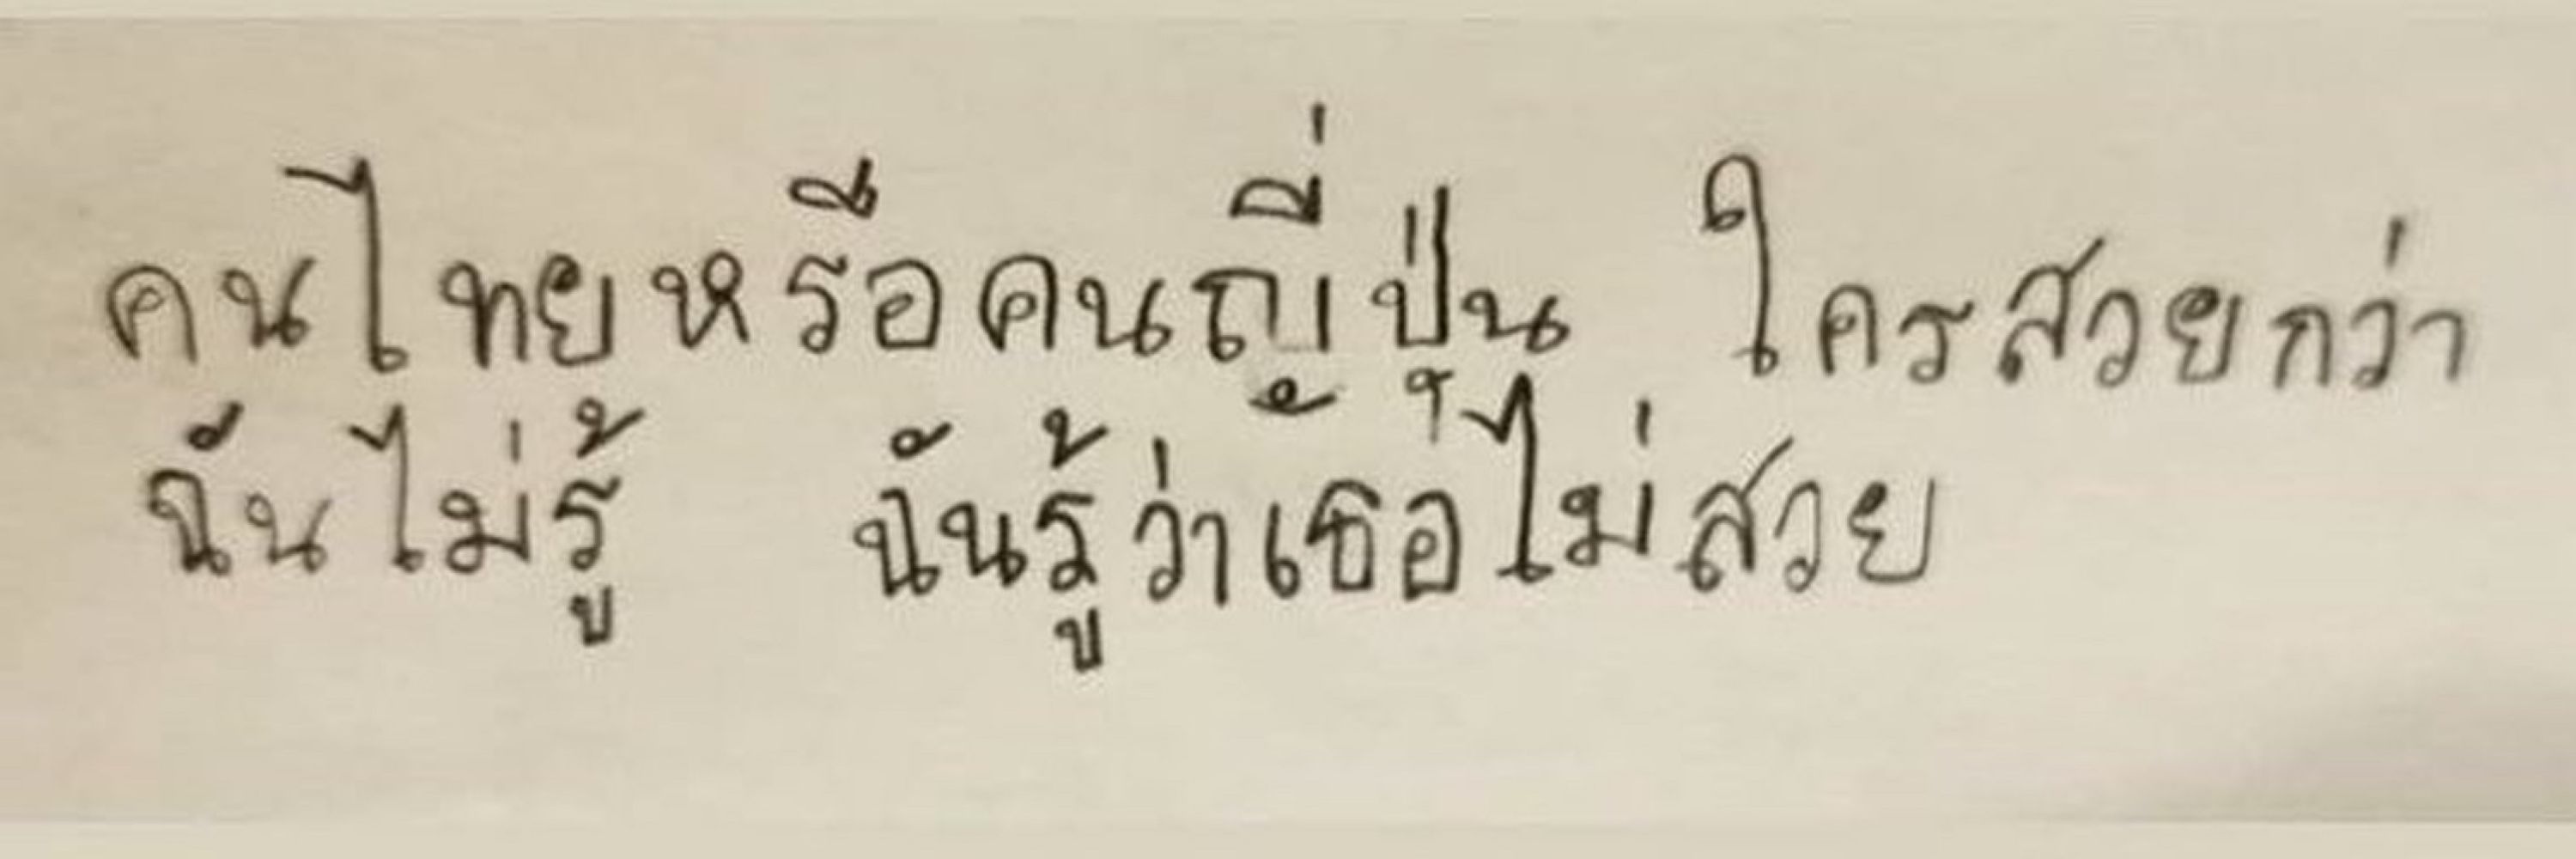 คนไทยหรือคนญี่ปุ่น ใครสวยกว่า
ฉันไม่รู้ ฉันรู้ว่าเธอไม่สวย